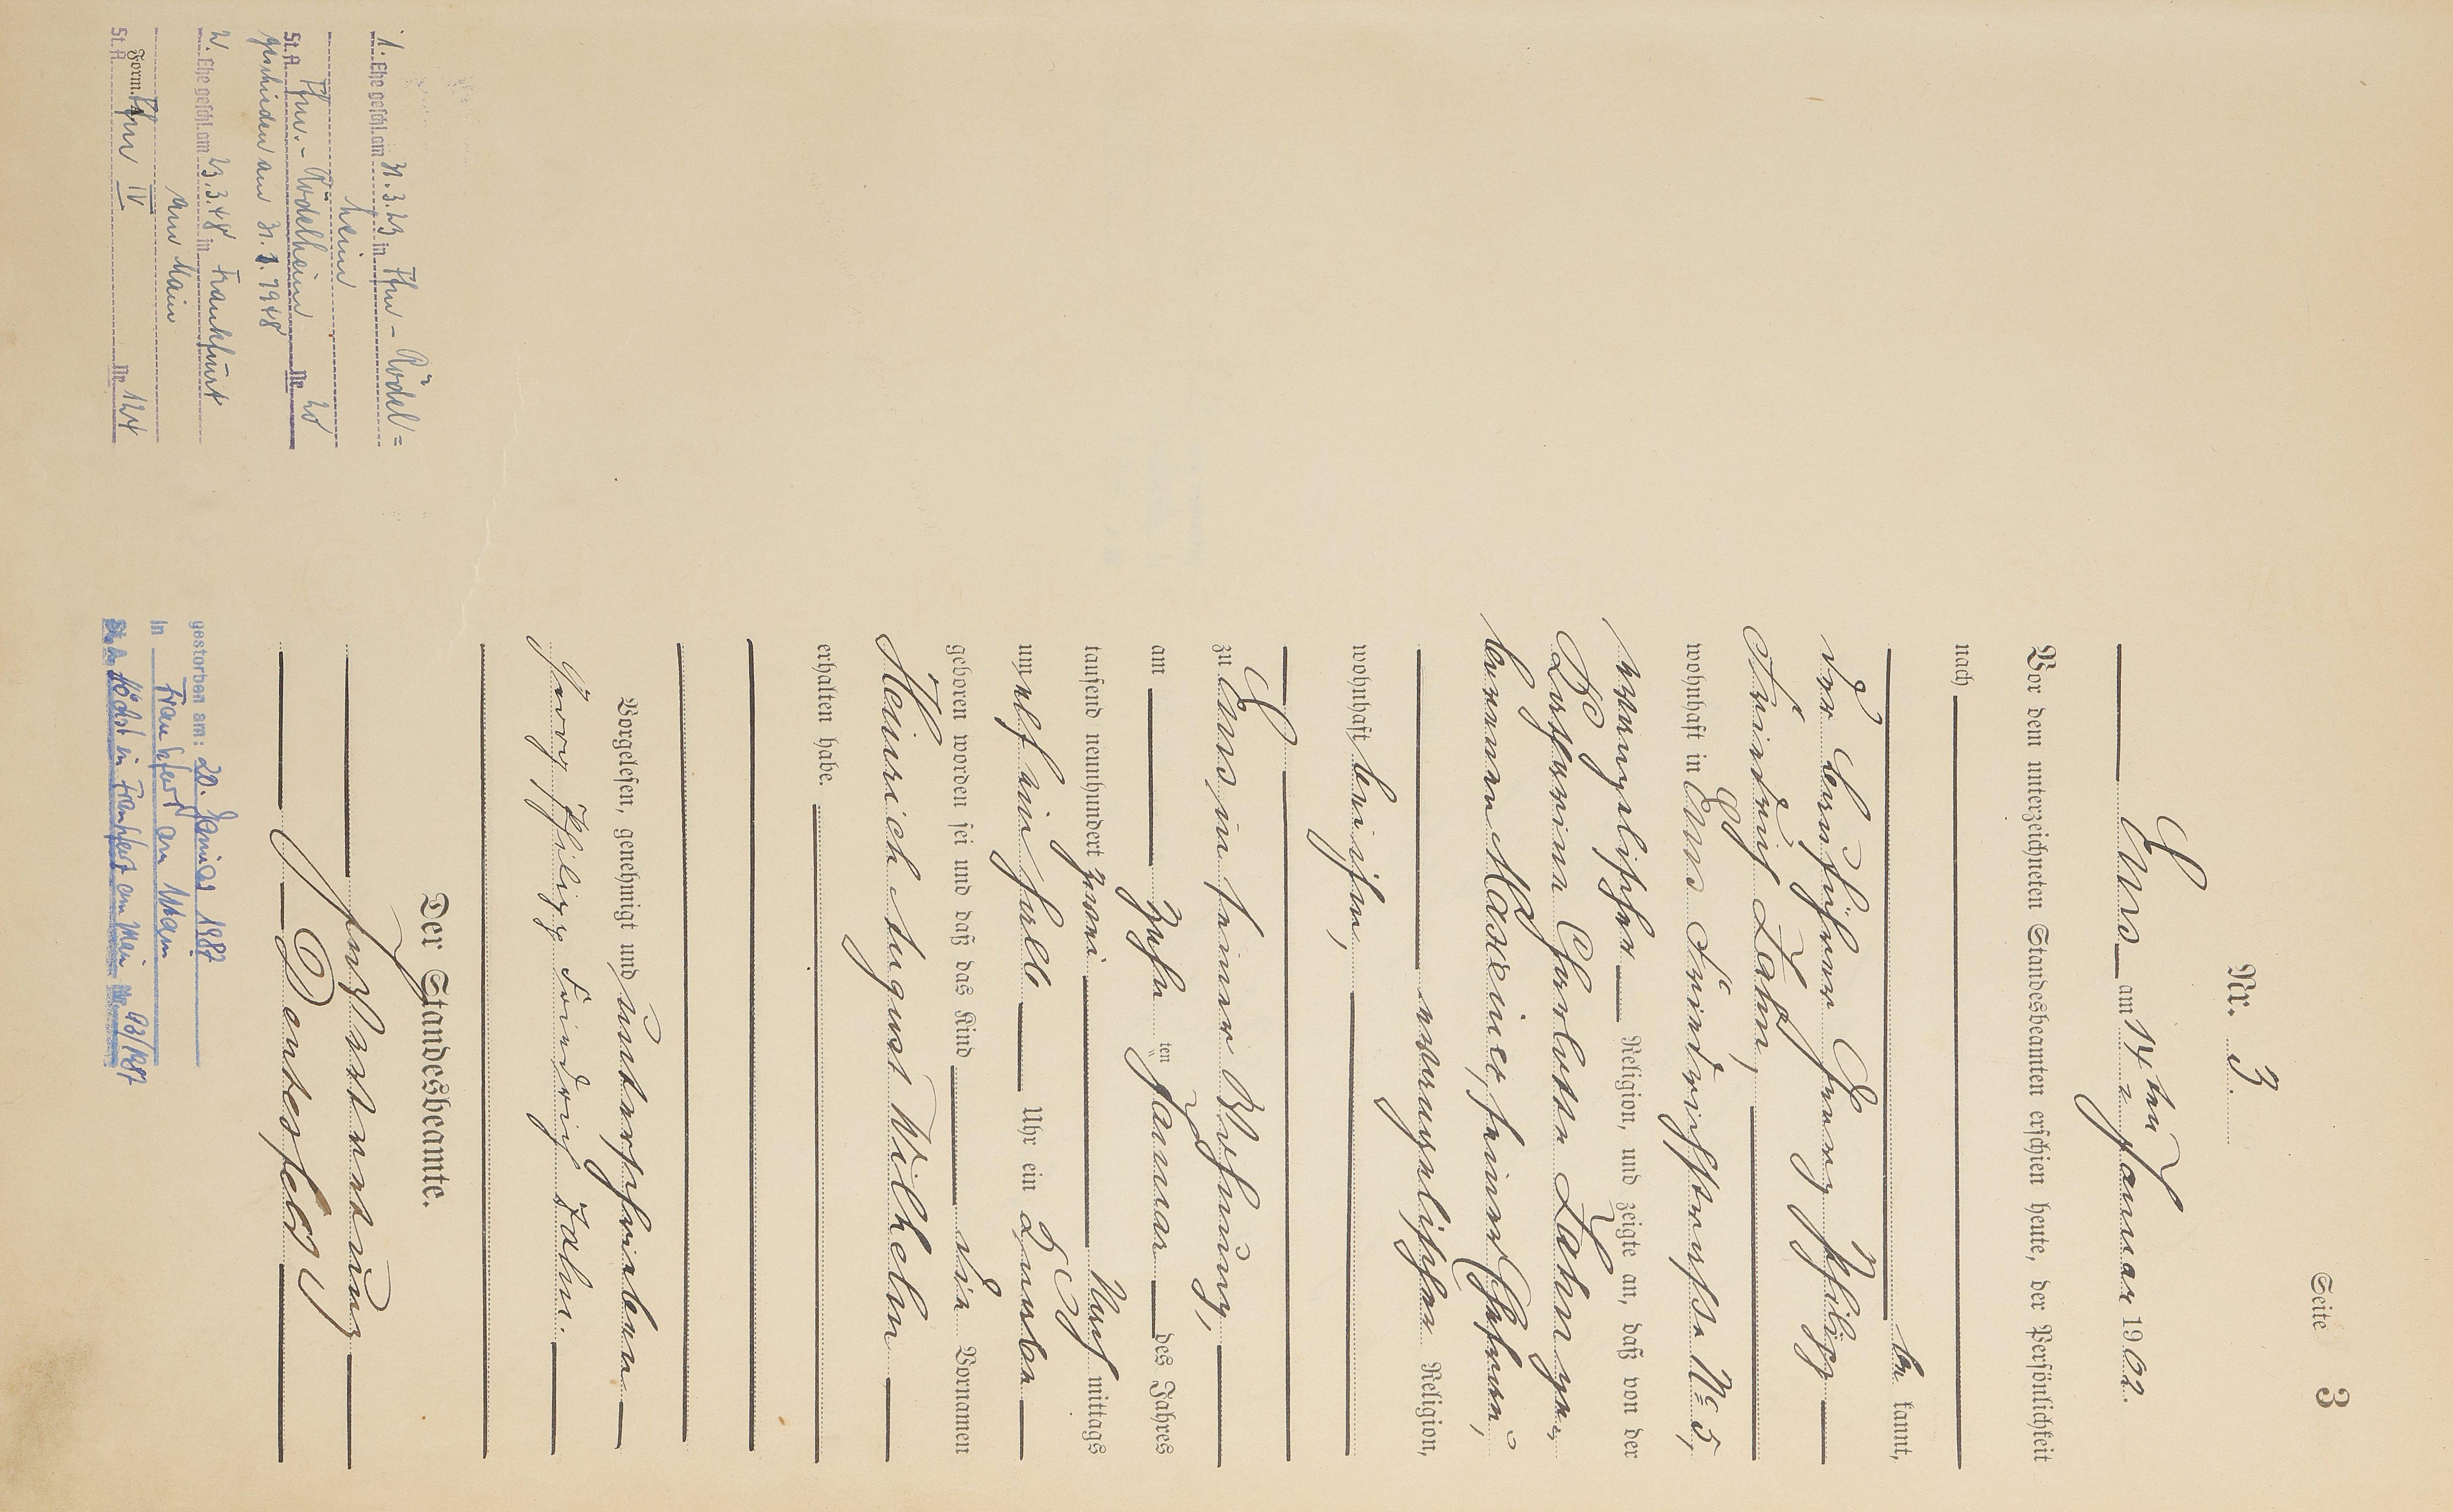 Seite 3
Nr. 3.
Ems am 14ten Januar 1902.
Vor dem unterzeichneten Standesbeamten erschien heute, der Persönlichkeit
nach
be kannt,
der Bauführer Georg Philipp
Friedrich Dahm,
wohnhaft in Ems Friedrichstraße No 5,
evangelischer Religion, und zeigte an, daß von der
Charlotte Dahm ge-
borenen seiner Ehefrau,
evangelischer Religion,
wohnhaft bei ihm,
zu Ems, in seiner Wohnung,
am Zehn ten Januar des Jahres
tausend neunhundert zwei Nach mittags
um elf ein halb Uhr ein Knabe
geboren worden sei und daß das Kind die Vornamen
Heinrich August Wilhelm
erhalten habe.
Vorgelesen, genehmigt und unterschrieben
Georg Philipp Friedrich Dahm.
Der Standesbeamte.
In Vertretung
gestorben am: 20. Januar 1987
in Frankfurt am Main
St. A. Höchst in Frankfurt am Main Nr. 93/1987
1. Ehe geschl. am 31.3.23 in Ffm - Rödel=
heim
St. A. Ffm. - Rödelheim Nr. 20
geschieden am 31.1.1948
2. Ehe geschl. am 23.3.48 in Frankfurt
am Main
Form. A
St. A. Ffm IV Nr. 124